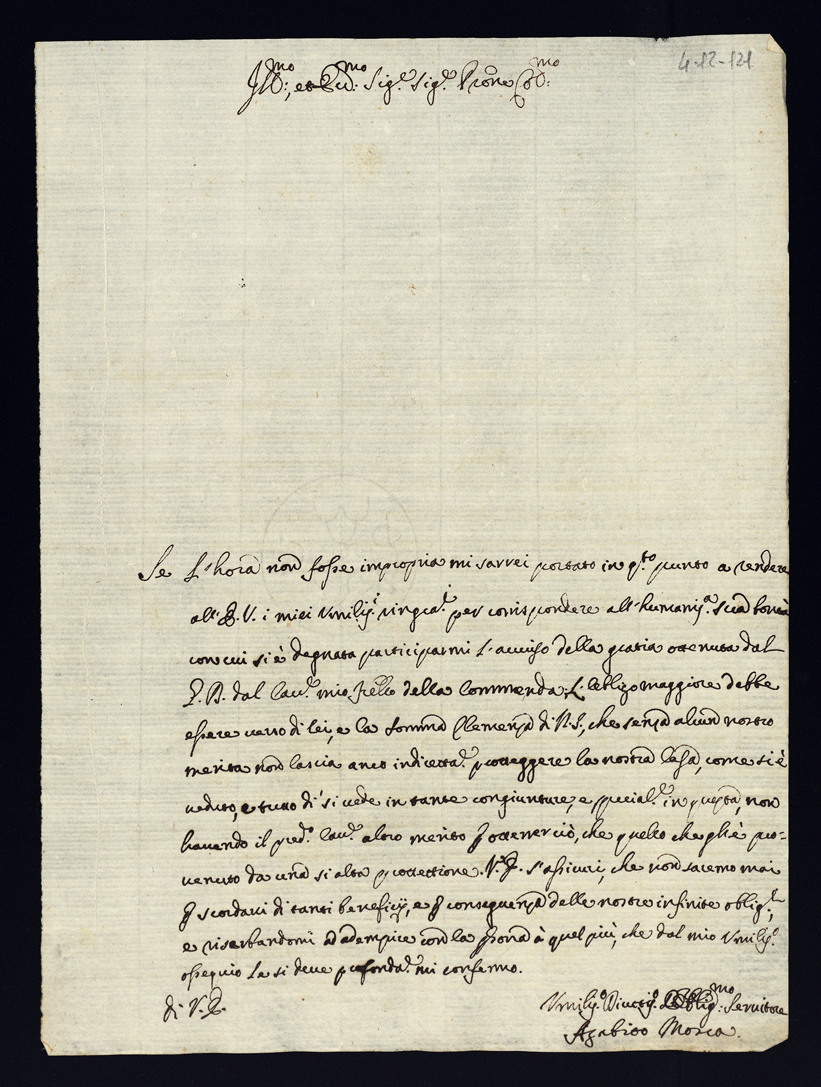 4-12-121
Ill:mo, et Ecc:mo Sig.r Sig.r Prone Col:mo
Se l'hora non fosse impropria mi sarei portato in q.sto punto a rendere
all'E.V. i miei Umiliss.i ringra.ti per corrispondere all'humaniss.a sua bontà
con cui si è degnata participarmi l'auuiso della gratia ottenuta dal
P. dal Cau.re mio fratello della Commenda; l'obligo maggiore debbe
essere verso di lei, e la somma Clemenza di N.S., che senza alcun nostro
merito non lascia anco indirettam.te proteggere la nostra Casa, come si è
veduto, e tutto dì si vede in tante congiunture, e specialm.te in questa, non
hauendo il pred.o Cau.re altro merito p ottenerciò, che quello che gli è pro-
uenuto da una sì alta protettione. V.E. s'assicuri, che non saremo mai
p scordarci di tanti beneficij, e p conseguenza delle nostre infinite oblig.ni,
e riserbandomi ad adempire con la persona à quel più, che dal mio Umiliss.o
ossequio Le si deve profondam.te mi confermo.
di V.E.
Umiliss.o Diuotiss.o Obblig:mo Seruitore
Agabito Mosca.